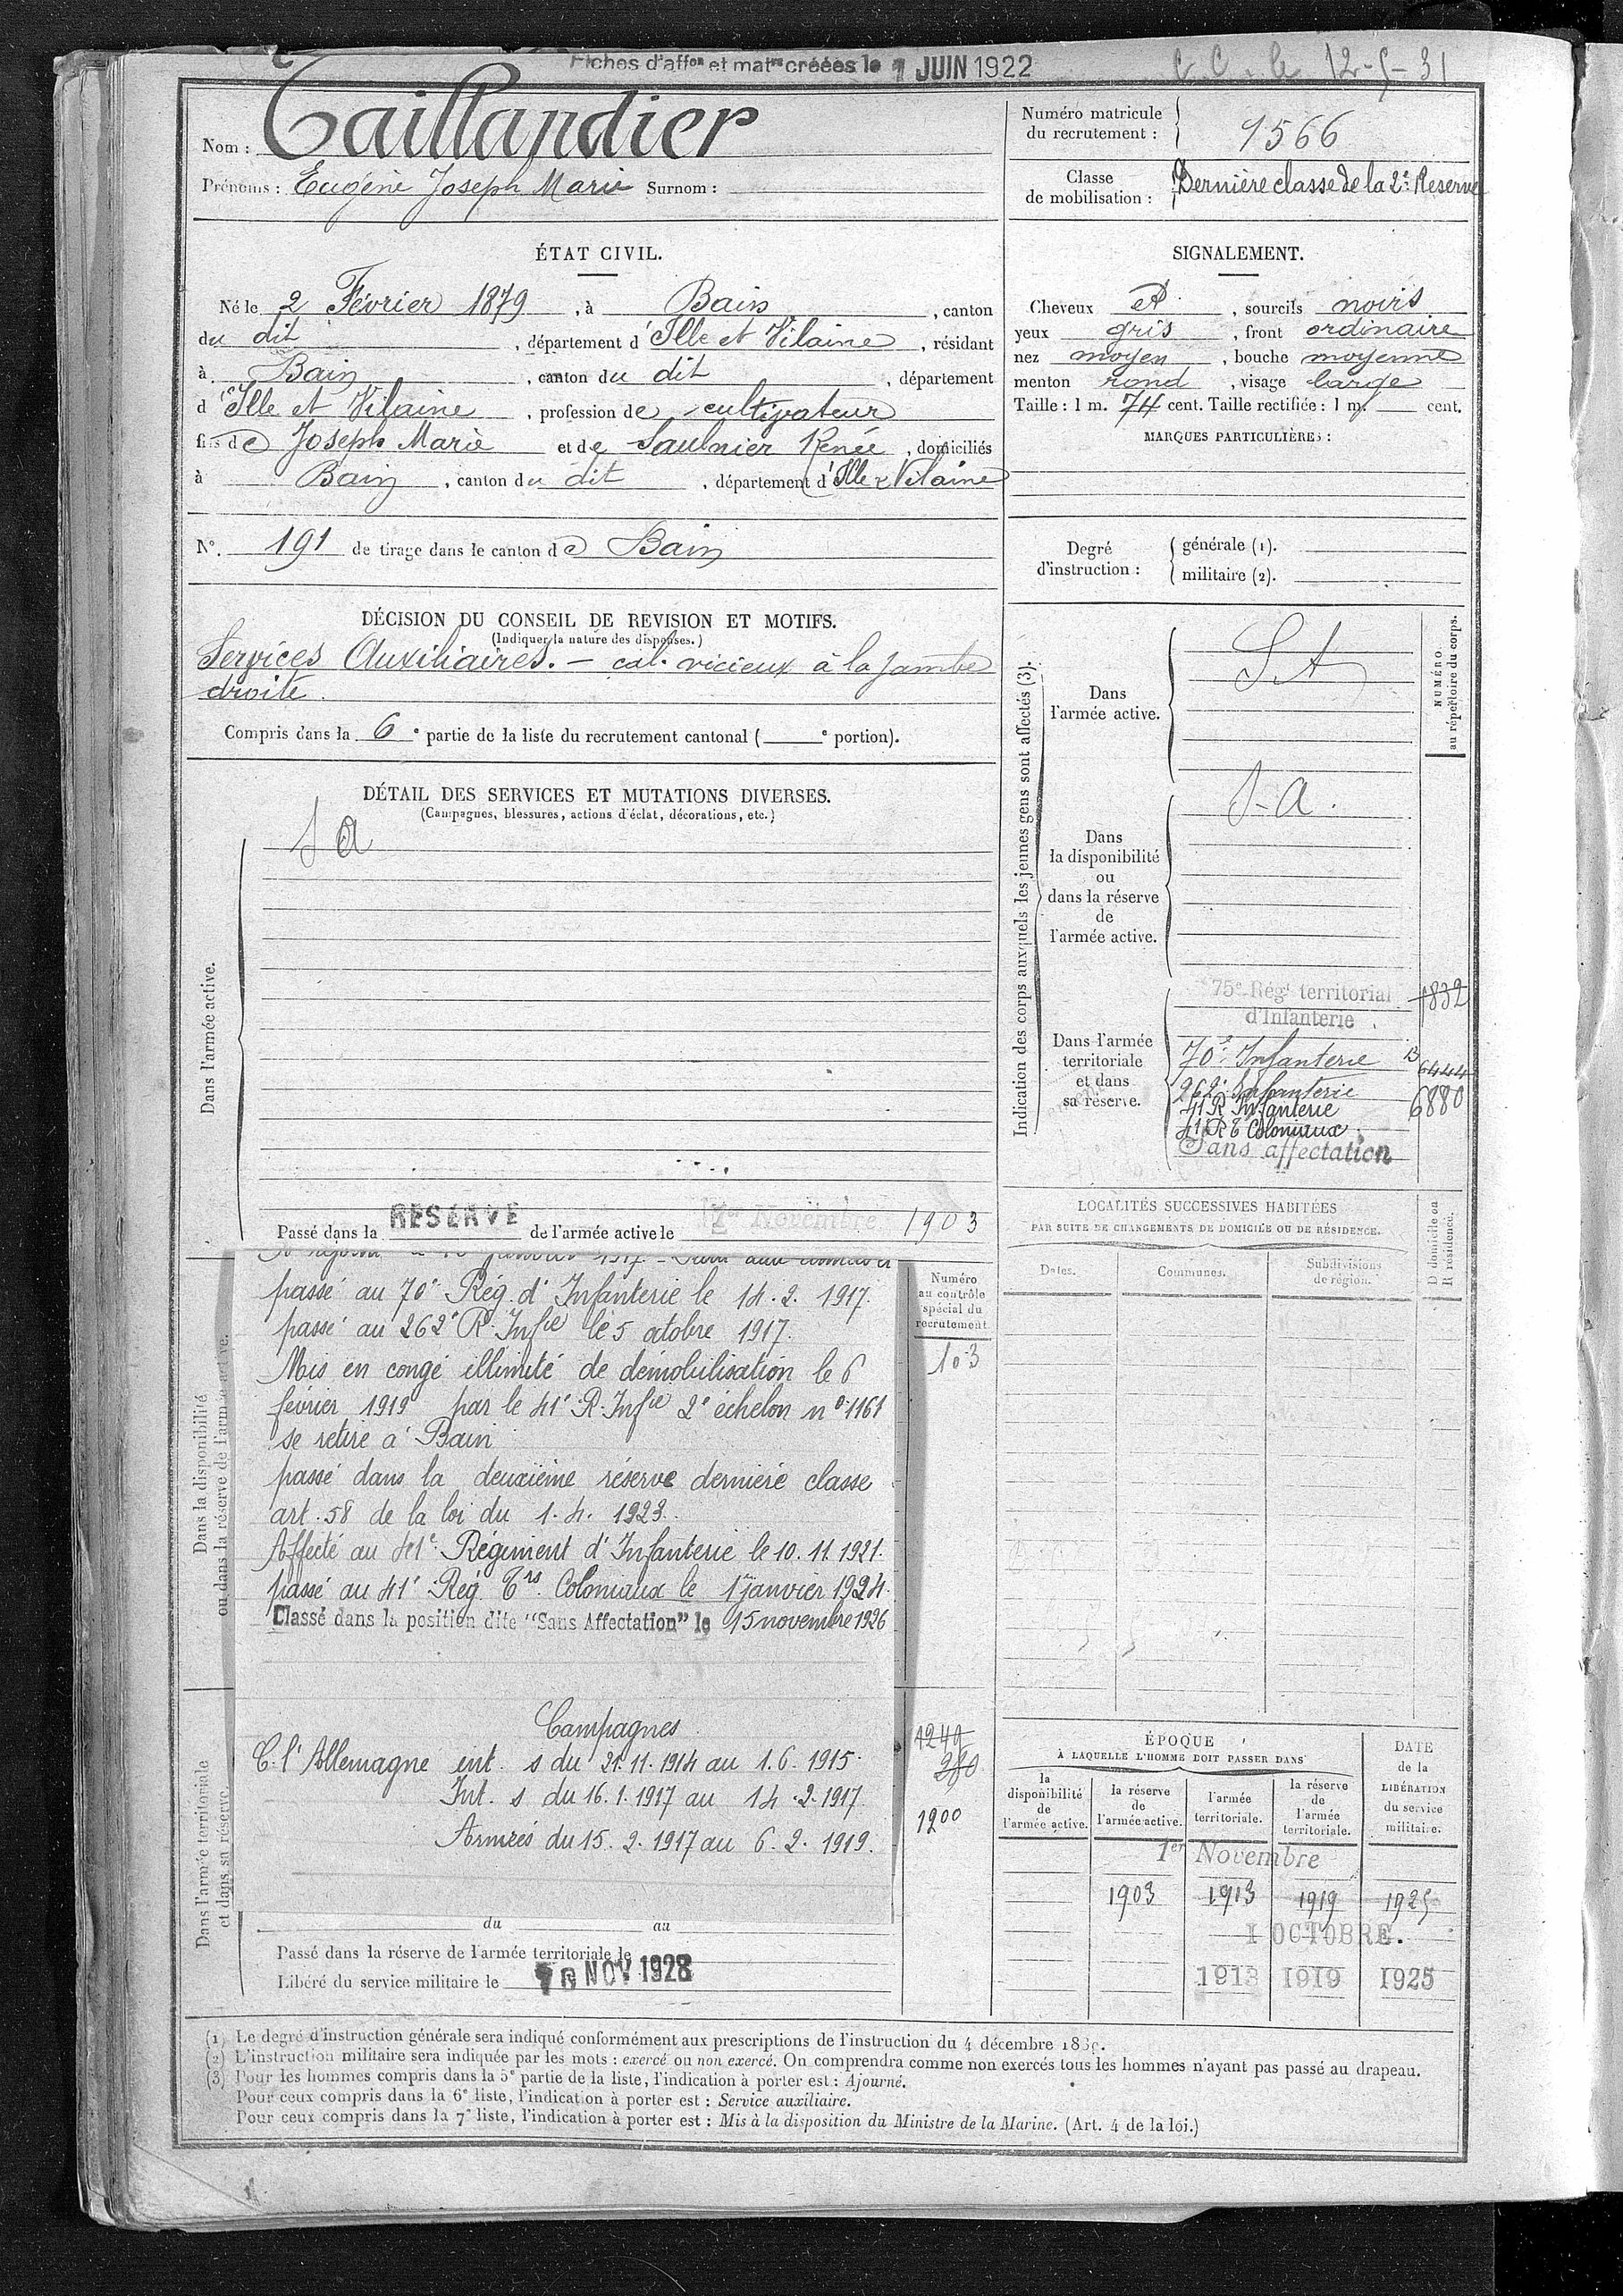 Fiches d'affon et matres créées le 1 JUIN 1922
C C. le 12-5-31
Nom : Taillandier
Prénoms : Eugène Joseph Marie Surnom :
Numéro matricule du recrutement : 1566
Classe de mobilisation : Dernière classe de la 2e Reserve
ÉTAT CIVIL.
Né le 2 Février 1879, à Bain, canton
du dit, département d'Ille et Vilaine, résidant
à Bain, canton du dit, département
d'Ille et Vilaine, profession de cultivateur
fils de Joseph Marie et de Saulnier Renée, domiciliés
à Bain, canton du dit, département d'Ille & Vilaine
N°. 191 de tirage dans le canton de Bain
SIGNALEMENT.
Cheveux et, sourcils noirs
yeux gris, front ordinaire
nez moyen, bouche moyenne
menton rond, visage large
Taille : 1 m. 74 cent. Taille rectifiée : 1 m. cent.
MARQUES PARTICULIÈRES :
Degré d'instruction :
générale (1).
militaire (2).
DÉCISION DU CONSEIL DE REVISION ET MOTIFS.
(Indiquer la nature des dispenses.)
Services Auxiliaires. – cal. vicieux à la jambe
droite.
Compris dans la 6e partie de la liste du recrutement cantonal (e portion).
DÉTAIL DES SERVICES ET MUTATIONS DIVERSES.
(Campagnes, blessures, actions d'éclat, décorations, etc.)
Dans l'armée active.
S a
Passé dans la RÉSERVE de l'armée active le 1er Novembre 1903
Dans la disponibilité
ou dans la réserve de l'armée active.
passé au 70e Rég. d'Infanterie le 14. 2. 1917.
passé au 262e R. Infie le 5 octobre 1917.
Mis en congé illimité de démobilisation le 6
février 1919 par le 41e R. Infie 2e échelon n° 1161
se retire à Bain
passé dans la deuxième réserve dernière classe
art. 58 de la loi du 1. 4. 1923.
Affecté au 41e Régiment d'Infanterie le 10. 11. 1921.
passé au 41e Rég. Trs Coloniaux le 1er janvier 1924.
Classé dans la position dite "Sans Affectation" le 15 novembre 1926
Campagnes
C. l'Allemagne int. s du 21. 11. 1914 au 1. 6. 1915.
Int. s du 16. 1. 1917 au 14. 2. 1917.
Armées du 15. 2. 1917 au 6. 2. 1919.
Dans l'armée territoriale
et dans sa réserve.
du au
Passé dans la réserve de l'armée territoriale le
Libéré du service militaire le 10 NOV 1928
Numéro
au contrôle
spécial du
recrutement.
103
1240
280
1200
Indication des corps auxquels les jeunes gens sont affectés (3).
NUMÉRO
au répertoire du corps.
Dans
l'armée active.
S A
Dans
la disponibilité
ou
dans la réserve
de
l'armée active.
S-a.
Dans l'armée
territoriale
et dans
sa réserve.
75e Régt territorial 1832
d'Infanterie
70e Infanterie B 6444
262e Infanterie
41 R Infanterie 6880
41 R T Coloniaux
Sans affectation
LOCALITÉS SUCCESSIVES HABITÉES
PAR SUITE DE CHANGEMENTS DE DOMICILE OU DE RÉSIDENCE.
Dates.
Communes.
Subdivisions
de région.
D domicile ou
R résidence.
ÉPOQUE
À LAQUELLE L'HOMME DOIT PASSER DANS
la disponibilité de l'armée active.
la réserve de l'armée active.
l'armée territoriale.
la réserve de l'armée territoriale.
DATE
de la
LIBÉRATION
du service
militaire.
1er Novembre
1903 1913 1919 1925
1 OCTOBRE.
1913 1919 1925
(1) Le degré d'instruction générale sera indiqué conformément aux prescriptions de l'instruction du 4 décembre
(2) L'instruction militaire sera indiquée par les mots : exercé ou non exercé. On comprendra comme non exercés tous les hommes n'ayant pas passé au drapeau.
(3) Pour les hommes compris dans la 5e partie de la liste, l'indication à porter est : Ajourné.
Pour ceux compris dans la 6e liste, l'indication à porter est : Service auxiliaire.
Pour ceux compris dans la 7e liste, l'indication à porter est : Mis à la disposition du Ministre de la Marine. (Art. 4 de la loi.)